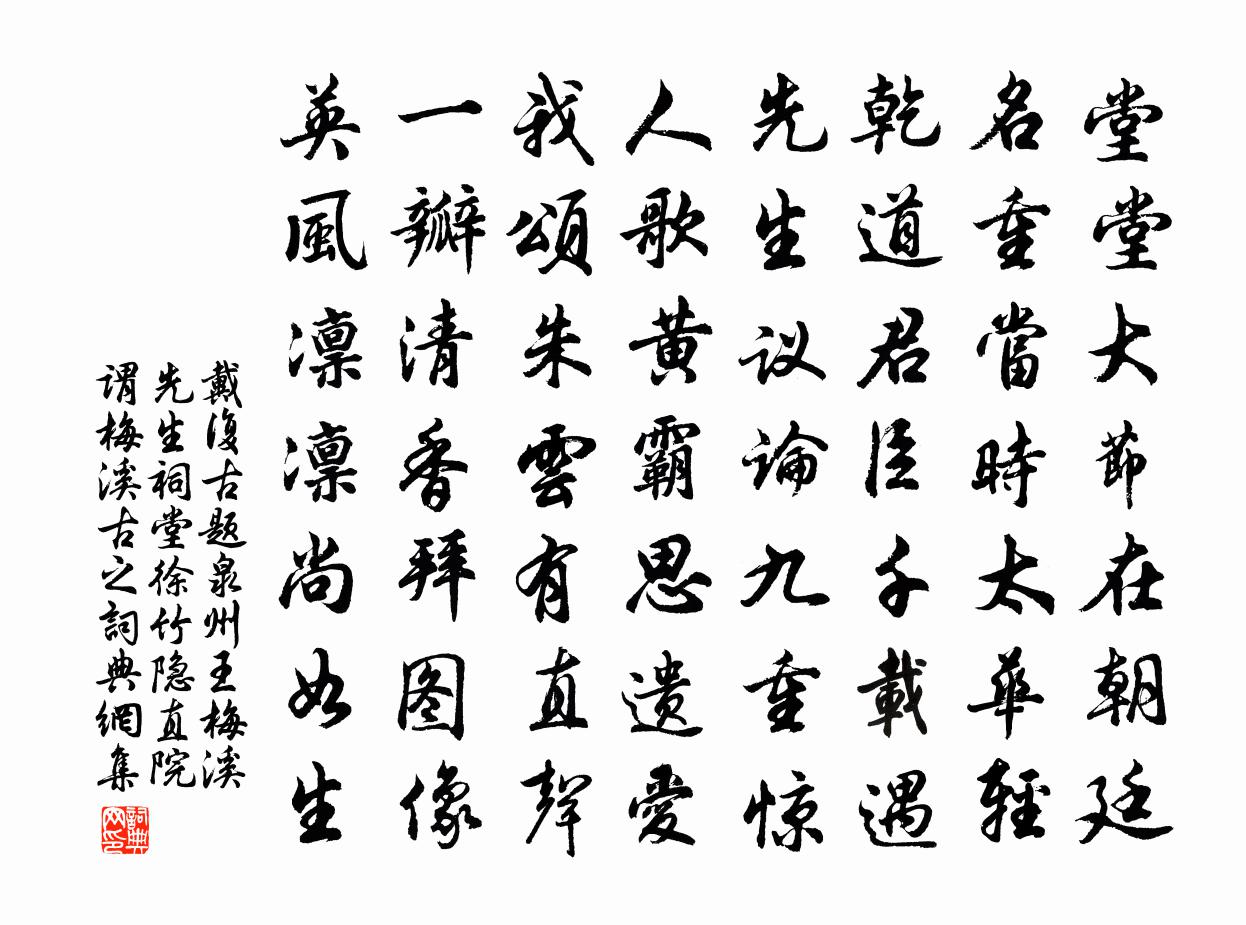 堂堂大節在朝廷
名重當時太華輕
乾道君臣千載遇
先生议論九重惊
人歌黄霸思遗愛
我頌朱雲有直聲
一瓣清香拜图像
英風凛凛尚如生
戴復古题泉州王梅溪
先生祠堂徐竹隐直院
谓梅溪古之
詞典網集
詞典网印